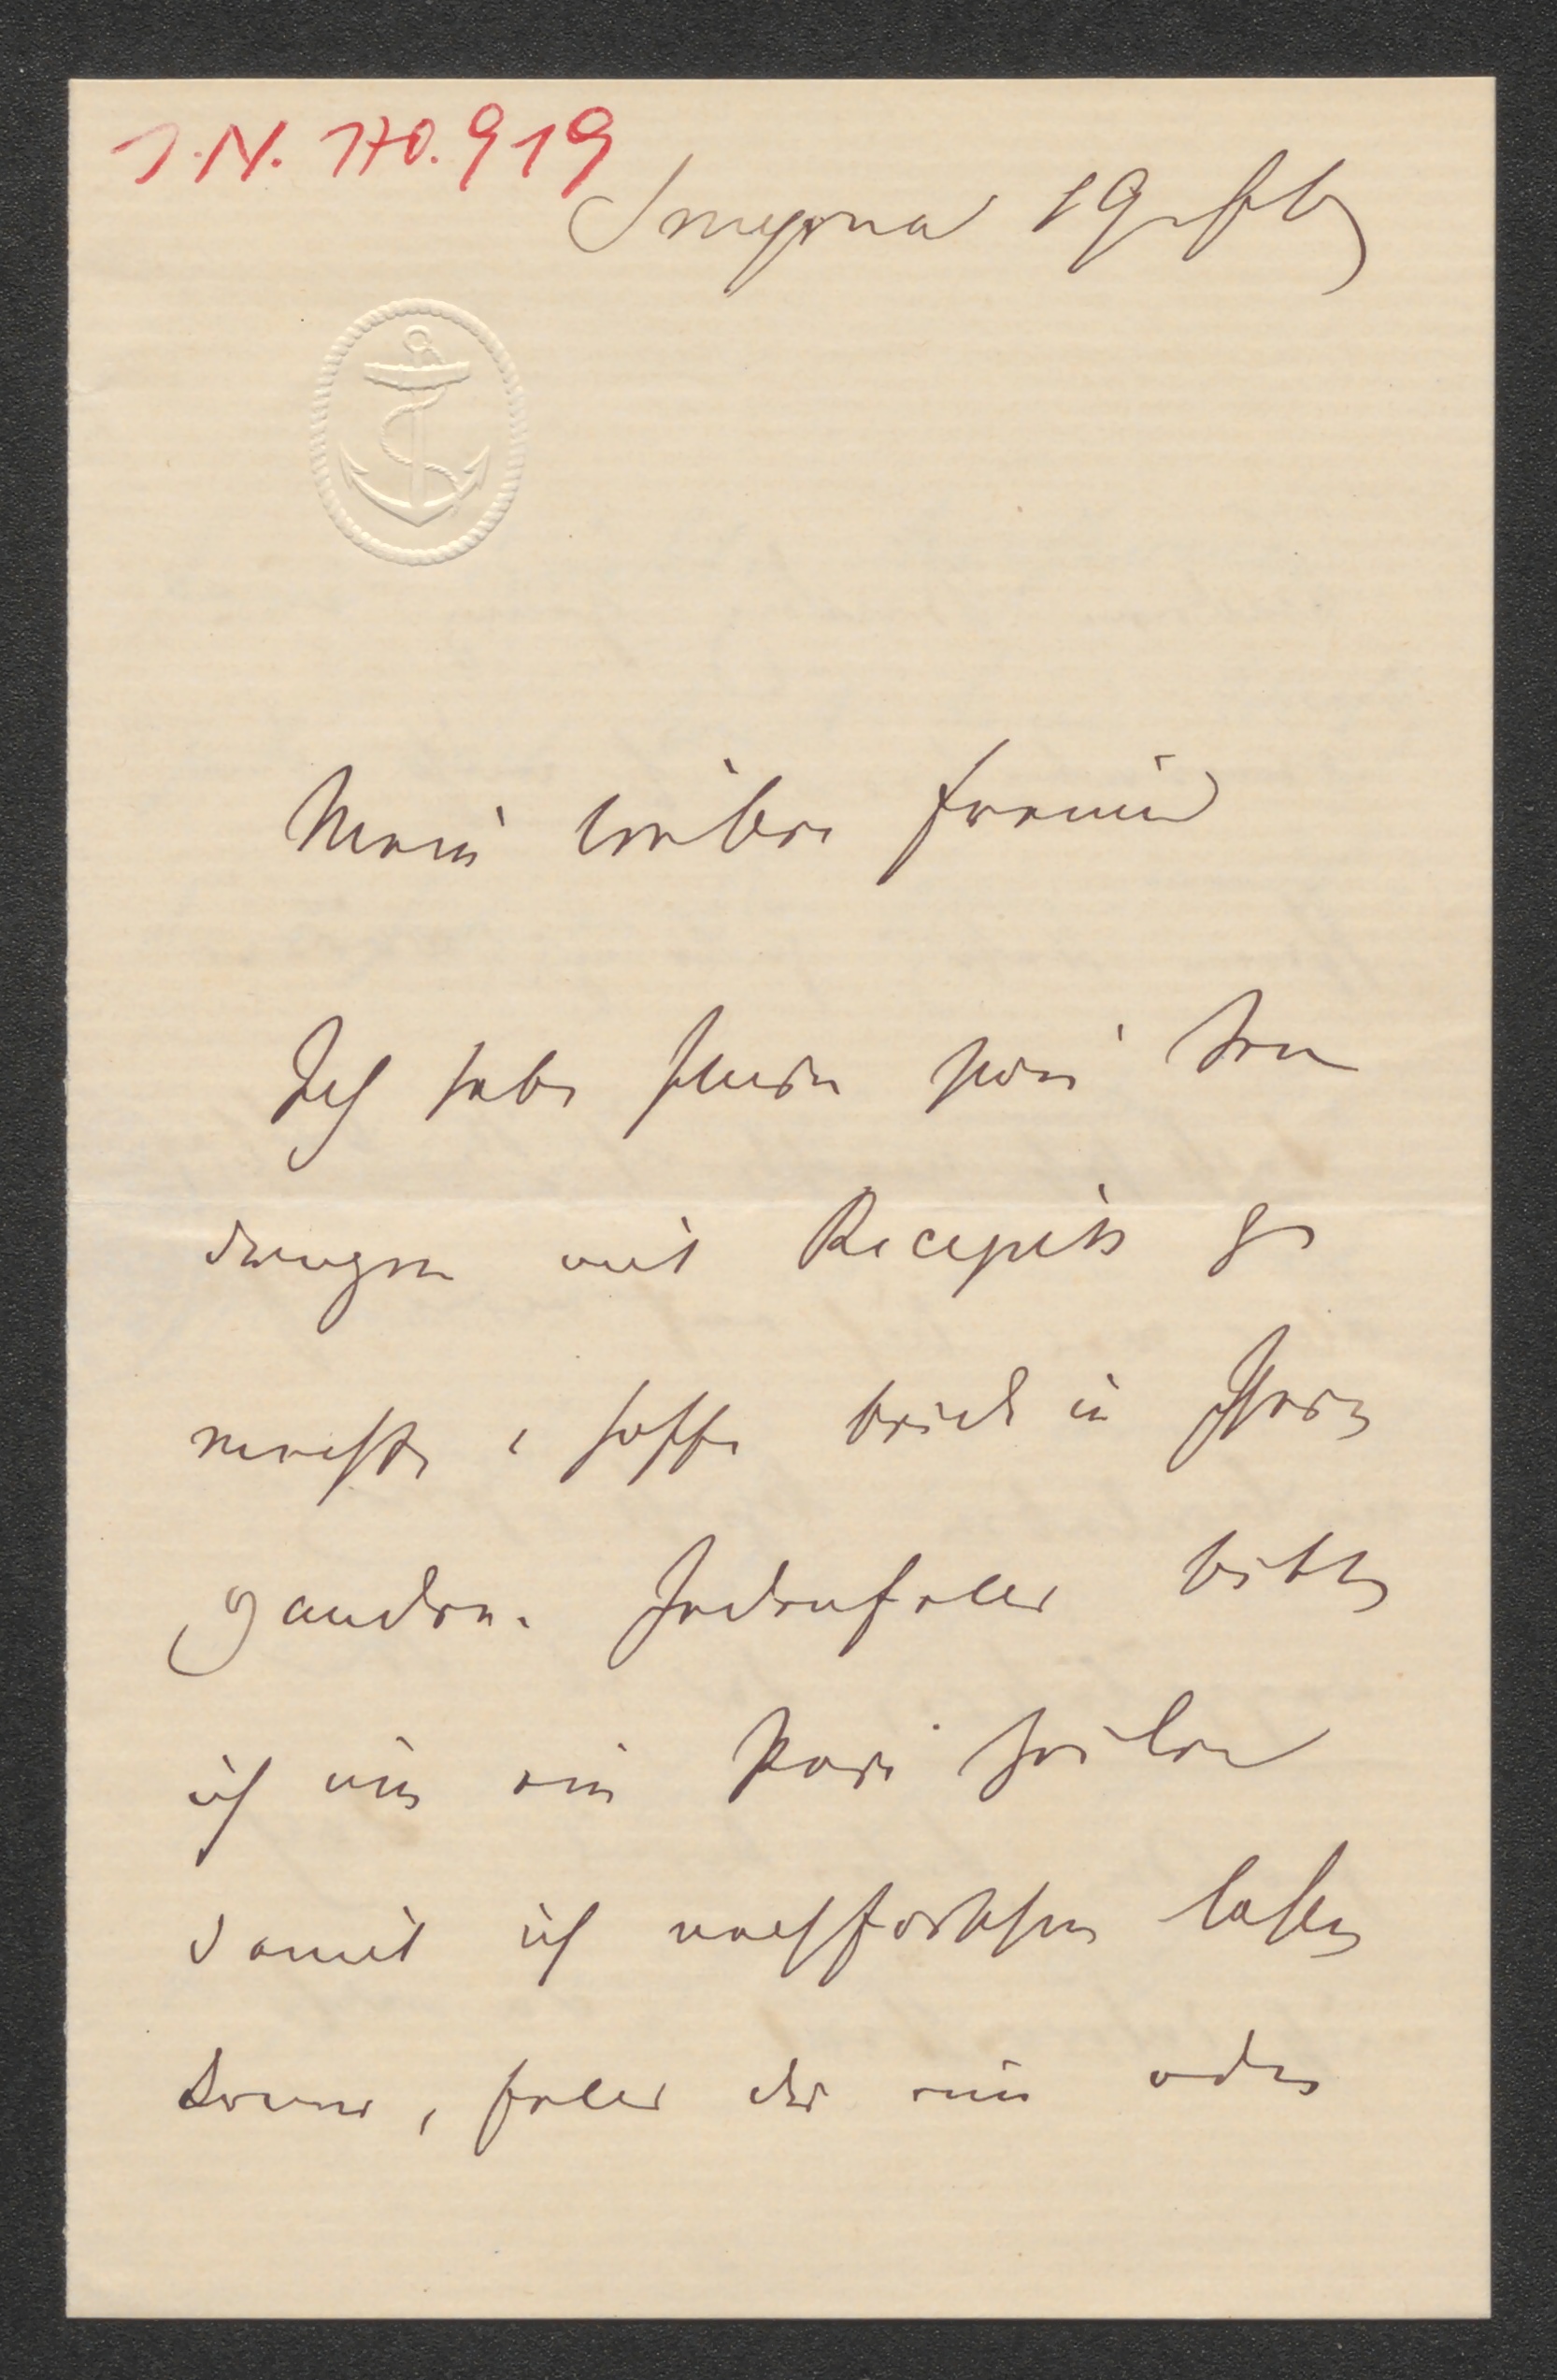 I.N. 170.919
Smyrna 19 Feb
Mein lieber Freund
Ich habe Ihnen zwei Sen
dungen mit Recepiss ge
macht, hoffe beide in Ihren
Handen. Jedenfalls bitte
ich um ein Paar Zeilen
damit ich nachforschen lassen
kann, falls das ein oder